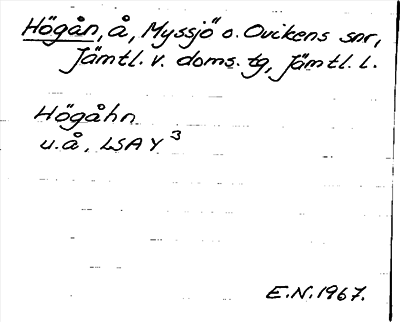 Högån, å, Myssjö o. Ovikens snr,
Jämtl. v. doms. tg, Jämtl. l.
Högåhn
u.å, LSA Y 3
E.N. 1967.